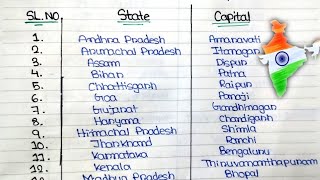 SL.NO State Capital
1. Andhra Pradesh Amaravati
2. Arunachal Pradesh Itanagar
3. Assam Dispur
4. Bihar Patna
5. Chhattisgarh Raipur
6. Goa Panaji
7. Gujarat Gandhinagar
8. Haryana Chandigarh
9. Himachal Pradesh Shimla
10. Jharkhand Ranchi
11. Karnataka Bengaluru
12. Kerala Thiruvananthapuram
Madhya Pradesh Bhopal